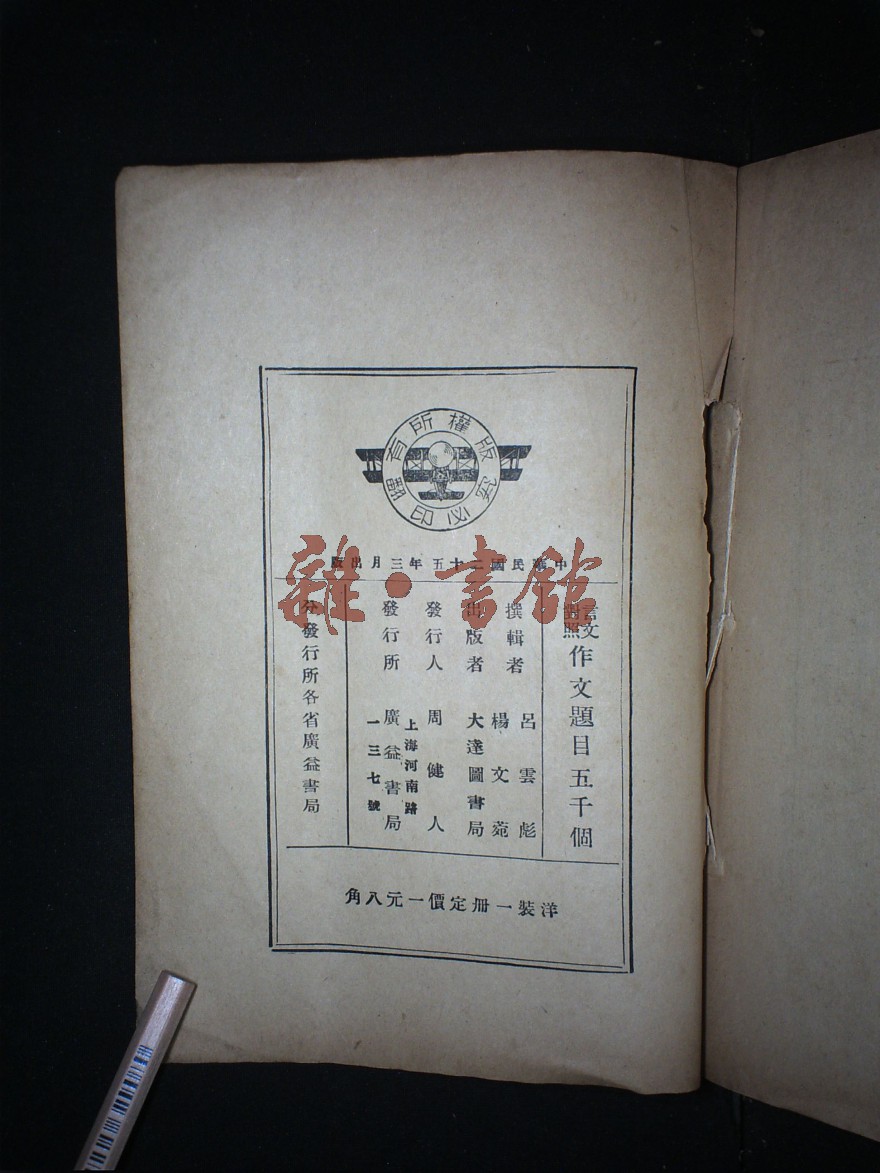 版權所有
翻印必究
中華民國二十五年三月出版
言文對照
作文題目五千個
撰輯者 呂雲彪 楊文菀
出版者 大達圖書局
發行人 周健人
發行所 上海河南路一三七號 廣益書局
分發行所各省廣益書局
洋裝一冊定價一元八角
雜·書館